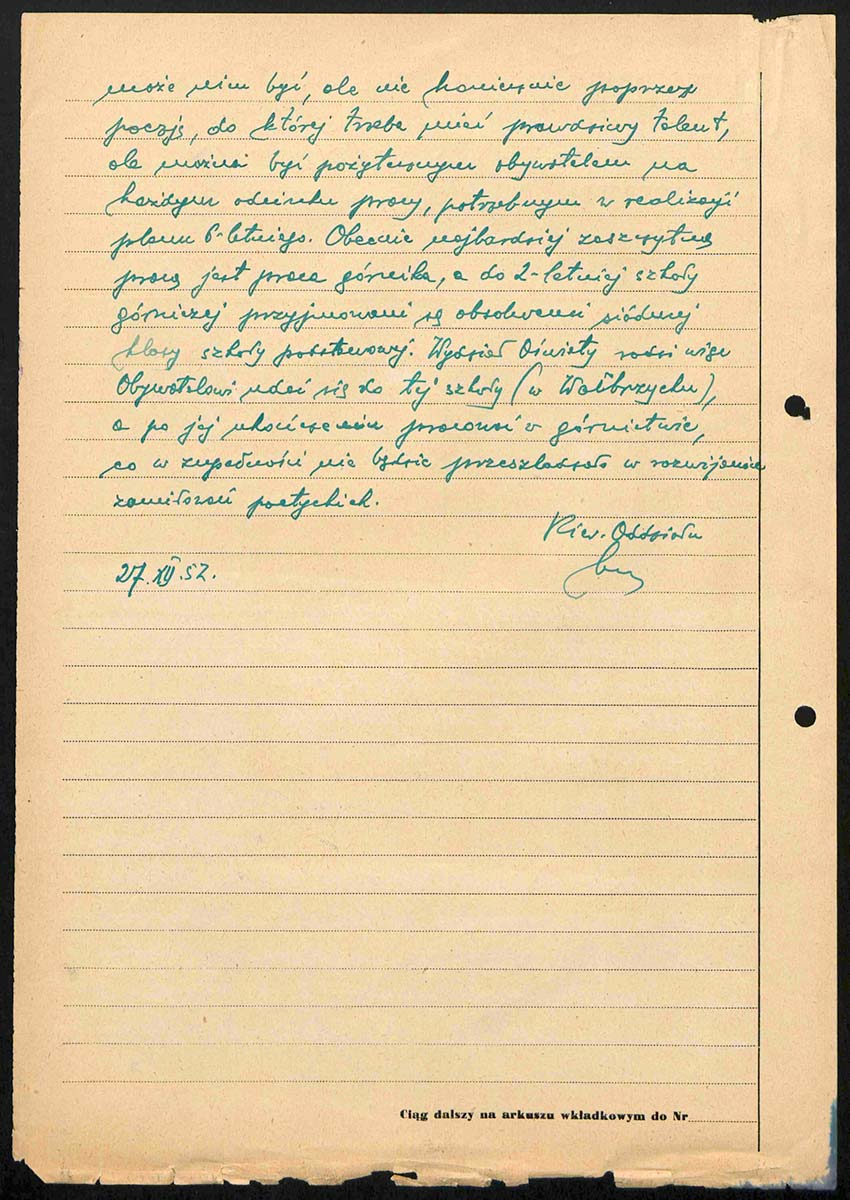 może nim być, ale nie koniecznie poprzez
poezję, do której trzeba mieć prawdziwy talent,
ale można być pożytecznym obywatelem na
każdym odcinku pracy, potrzebnym w realizacji
planu 6-letniego. Obecnie najbardziej zaszczytną
pracą jest praca górnika, a do 2-letniej szkoły
górniczej przyjmowani są absolwenci siódmej
klasy szkoły podstawowej. Wydział Oświaty radzi więc
Obywatelowi udać się do tej szkoły (w Wałbrzychu),
a po jej ukończeniu pracować w górnictwie,
co w zupełności nie będzie przeszkadzało w rozwijaniu
zamiłowań poetyckich.
Kier. Oddziału
27.XII.52.
Ciąg dalszy na arkuszu wkładkowym do Nr